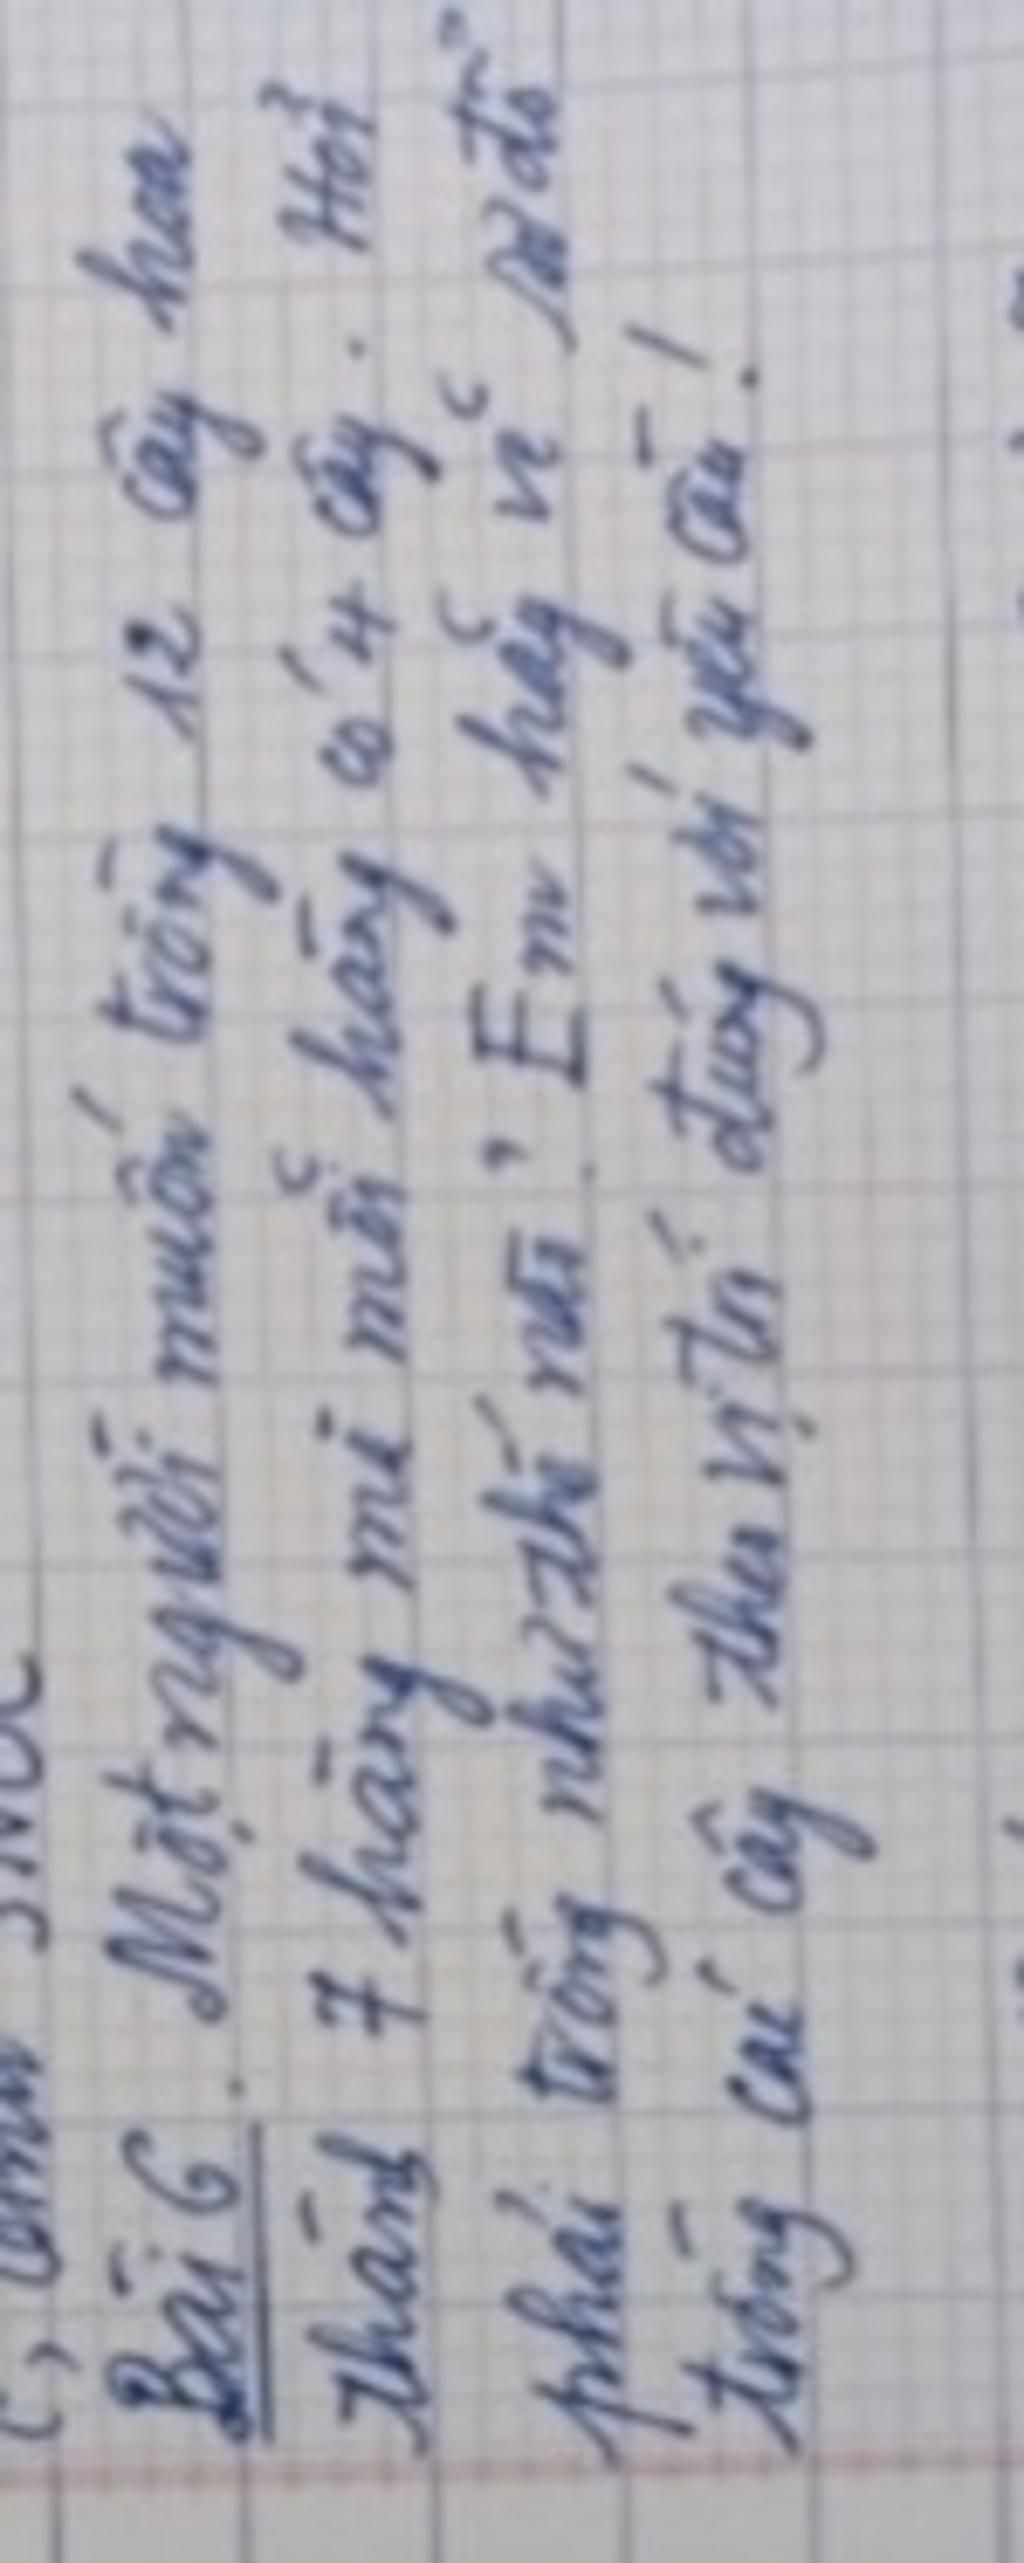 Bài 6. Một người muốn trồng 12 cây hoa
thành 7 hàng mà mỗi hàng có 4 cây. Hỏi
phải trồng như thế nào. Em hãy vẽ sơ đồ
trồng cái cây theo vị trí đúng với yêu cầu!